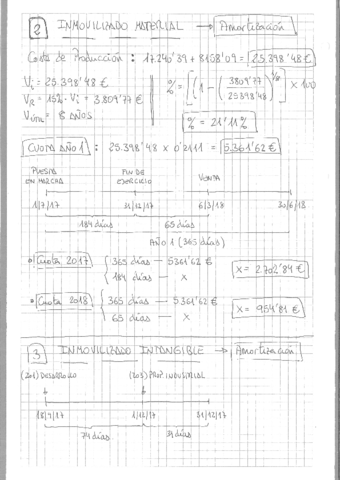 2 INMOVILIZADO MATERIAL → Amortización
Coste de Producción : 17.240'39 + 8158'09 = 25.398'48 €
Vi = 25.398'48 €
VR = 15% · Vi = 3.809'77 €
Vútil = 8 AÑOS
% = [(1 - (3809'77 / 25398'48)^1/8)] x 100
% = 21'11%
CUOTA AÑO 1 : 25.398'48 x 0'2111 = 5.361'62 €
PUESTA EN MARCHA FIN DE EJERCICIO VENTA
1/7/17 31/12/17 6/3/18 30/6/18
184 días 65 días
AÑO 1 (365 días)
Cuota 2017 { 365 días — 5361'62 €
184 días — x
x = 2.702'84 €
Cuota 2018 { 365 días — 5361'62 €
65 días — x
x = 954'81 €
3 INMOVILIZADO INTANGIBLE → Amortización
(201) DESARROLLO (203) PROP. INDUSTRIAL
18/9/17 1/12/17 31/12/17
74 días 31 días